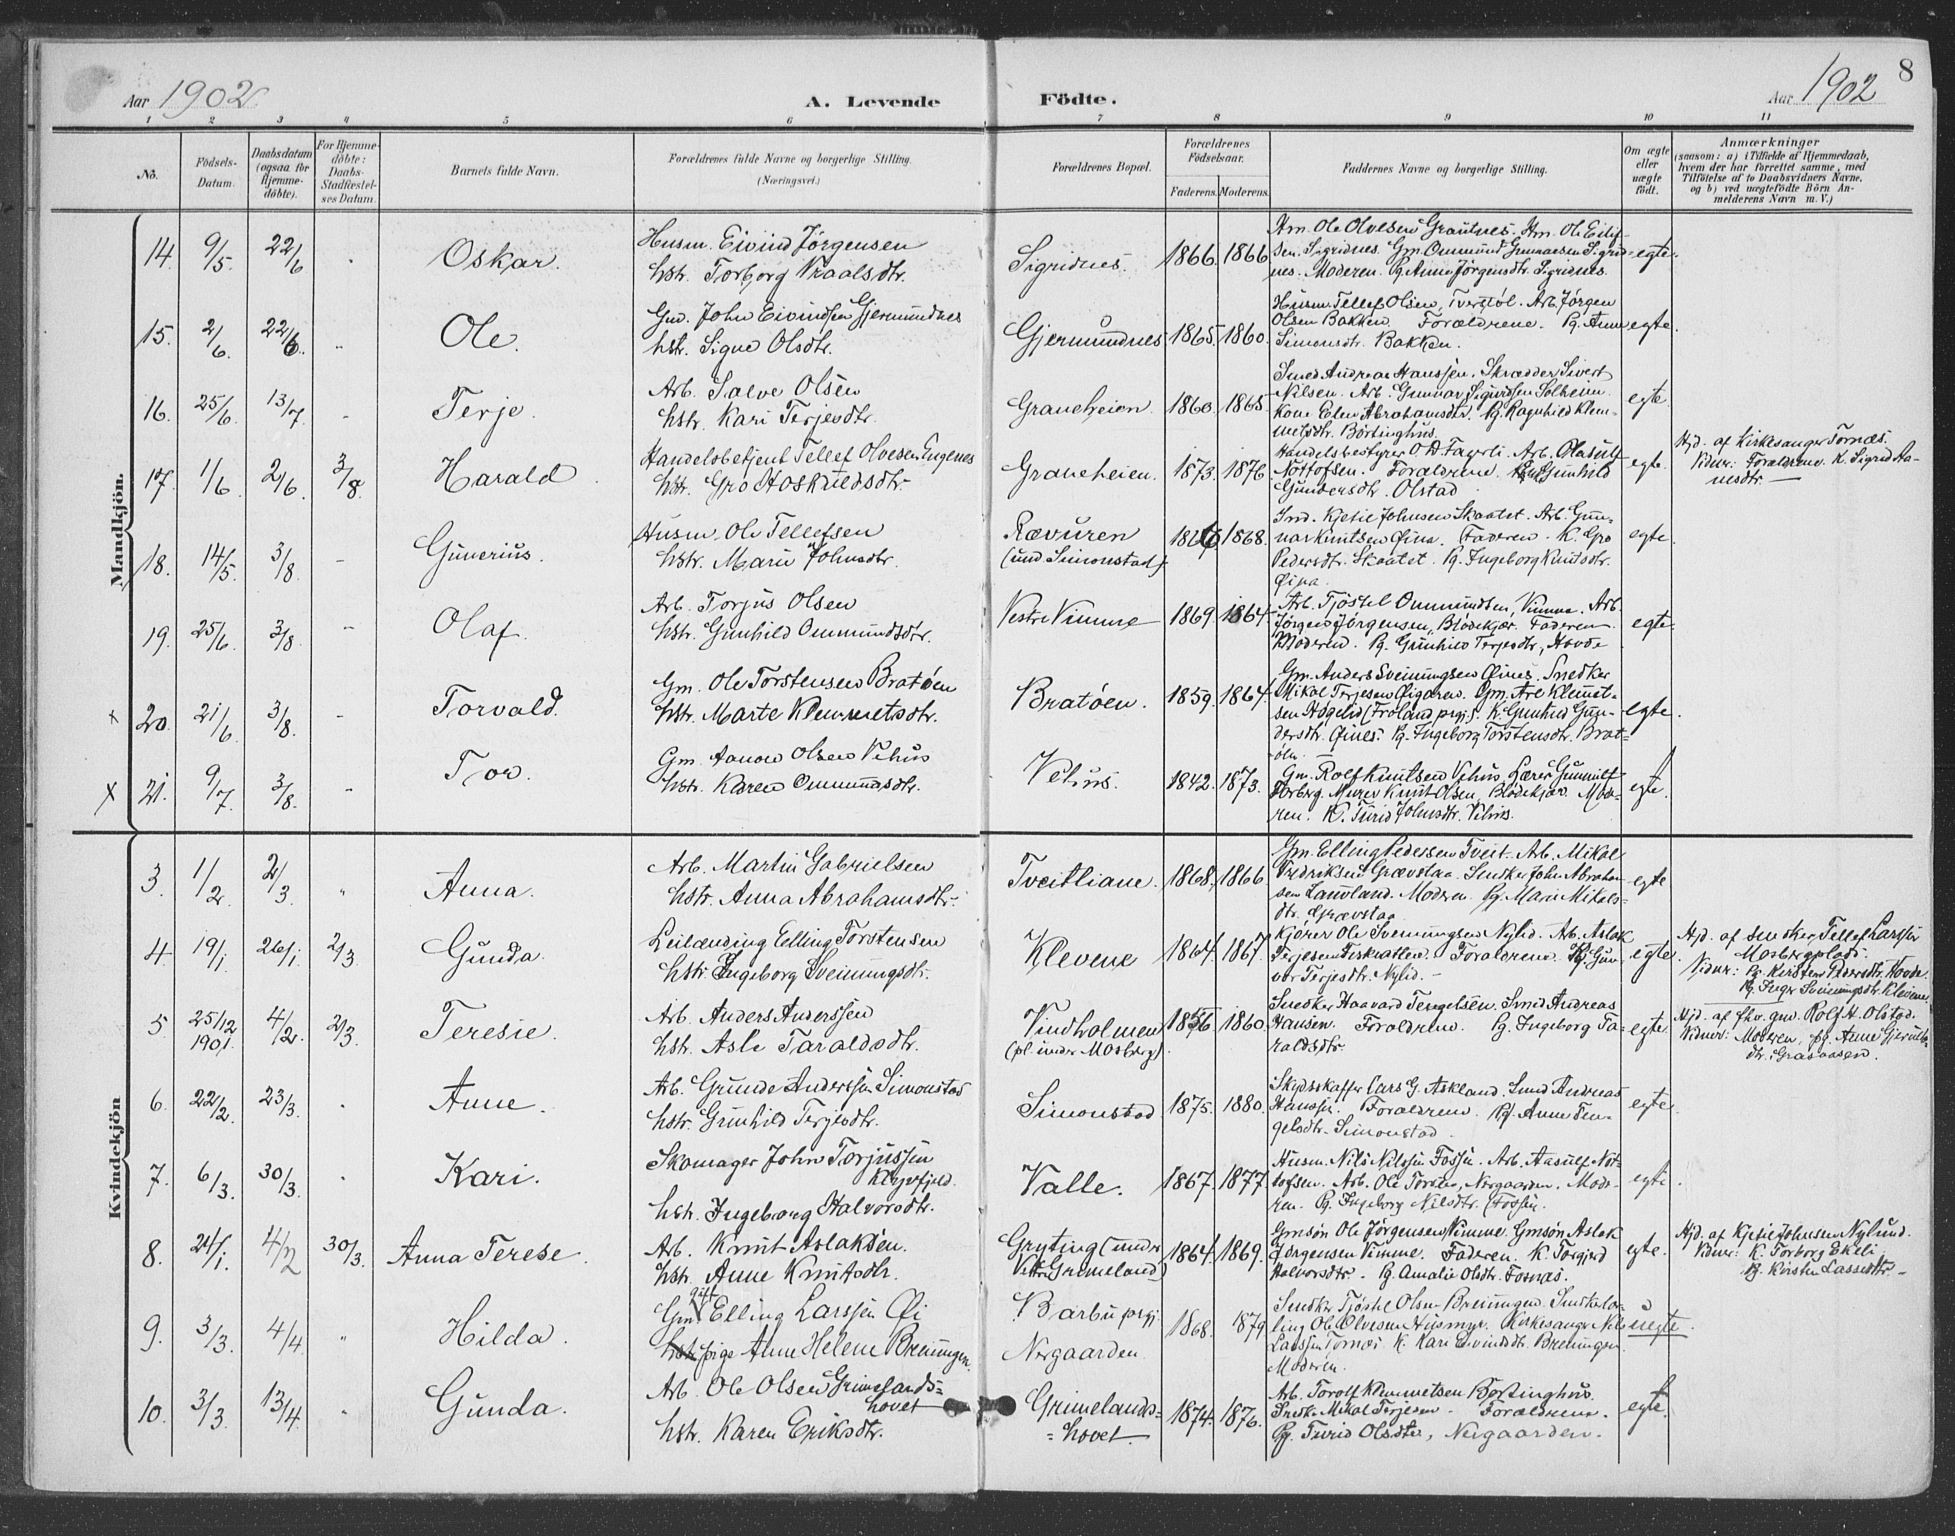 8
Aar 1902
A. Levende
Födte.
Aar 1902
1 2 3 4 5 6 7 8 9 10 11
No.
Födsels-
Datum.
Daabsdatum
(ogsaa for
Hjemme-
döbte).
For Hjemme-
döbte:
Daabs-
Stadfæstel-
ses Datum.
Barnets fulde Navn.
Forældrenes fulde Navne og borgerlige Stilling.
(Næringsvei.)
Forældrenes Bopæl.
Forældrenes
Födselsaar.
Faderens. Moderens.
Faddernes Navne og borgerlige Stilling.
Om ægte
eller
uægte
födt.
Anmærkninger
(saasom: a) i Tilfælde af Hjemmedaab,
hvem der har forrettet samme, med
Tilföielse af to Daabsvidners Navne.
og b) ved uægtefödte Börn An-
melderens Navn m. V.)
Mandkjön.
14. 9/5. 22/6 Oskar.
Husm. Eivind Jörgensen
hstr. Torborg Vraalsdtr.
Sigridnes. 1866. 1866
Hm. Ole Olvesen Grautnes. Hm. Ole
Sigridnes. Gm. Ommund Gunnarsen Sigrid-
nes. Moderen. Pg. Anne Jörgensdtr. Sigridnes.
egte.
15. 2/6. 22/6. Ole.
Gm. John Eivindsen Gjermundnes
hstr. Signe Olsdtr.
Gjermundnes 1865. 1860.
Husm. Tellef Olsen, Tverstöl. Arb. Jörgen
Olsen Bakken. Forældrene. Pg. Anne
Simonsdtr. Bakken.
egte.
16. 25/6. 13/7. Terje.
Arb. Salve Olsen
hstr. Kari Terjesdtr.
Graneheien. 1860. 1865
Smed Andreas Hanssen. Skrædder Sivert
Nilsen. Arb. Gunnar Sigurdsen Solheim.
Kone Elen Abrahamsdtr. Pg. Ragnhild Klem-
metsdtr. Börtinghus.
egte
17. 1/6. 2/6. 3/8. Harald
Handelsbetjent Tellef Olvesen Engenes
hstr. Gro Hoskuldsdtr.
Graneheien. 1873. 1876.
Handelsbestyrer O. A. Arb. Olasulf
Nottofsen. Forældrene. Gunhild
Gundersdtr. Olstad
egte.
Hjd. af Kirkesanger Tornæs.
Vidner: Forældrene. K. Sigrid Aa-
nesdtr. —
18. 14/5. 3/8. Gunerius.
Husm. Ole Tellefsen
hstr. Marie Johnsdtr.
Rævuren
(und. Simonstad). 1868.
Smd. Kjetil Johnsen Skaatet. Arb. Gun-
nar Knutsen Öina. Faderen. K. Gro
Pedersdtr. Skaatet. Pg. Ingeborg Knutsdtr.
Öina.
egte.
19. 25/6. 3/8. Olaf.
Arb. Torjus Olsen
hstr. Gunhild Ommundsdtr.
Vestre Vimme 1869. 1864.
Arb. Tjöstel Ommundsen, Vimme. Arb.
Jörgen Jörgensen, Blödekjær. Faderen.
Moderen. Pg. Gunhild Terjesdtr, Hovde
egte.
x 20. 21/6. 3/8. Torvald.
Gm. Ole Torstensen Bratöen
hstr. Marte Klemmetsdtr.
Bratöen. 1859. 1864.
Gm. Anders Sveinungsen Öines. Snedker
Mikal Terjesen Öigaren. Gm. Are Klemet-
sen Högelid (Froland prgj). K. Gunhild Gun-
dersdtr. Öines. Pg. Ingeborg Torstensdtr. Brat-
öen.
egte.
x 21. 9/7. 3/8. Tor.
Gm. Aanon Olsen Vehus
hstr. Karen Ommundsdtr.
Vehus. 1842. 1873.
Gm. Rolf Knutsen Vehus, Lærer Gunnulf
Borberg. Murer Knut Olsen, Blödekjær. Mode-
ren. K. Turid Johnsdtr. Vehus.
egte.
Kvindekjön
3. 1/2. 2/3. Anna.
Arb. Martin Gabrielsen
hstr. Anna Abrahamsdtr.
Tveitliane. 1868. 1866
Gm. Elling Pedersen Tveit. Arb. Mikal
Fredriksen Grævstaa. Snedker John Abraham-
sen Landland. Moderen. Pg. Marie Mikals-
dtr. Grævstaa
egte
4. 19/1. 26/1. 2/3. Gunda.
Leilænding Elling Torstensen
hstr. Ingeborg Sveinungsdtr.
Klevene 1864. 1867.
Kjörer Ole Sveinungsen Nylid. Arb. Aslak
Terjesen Fiskvatten. Forældrene. Pg. Gun-
vor Terjesdtr. Nylid. –
egte.
Hjd. af Snedker Tellef Larssen
Mosbergplads.
Vidner: Pg. Kirsten Pedersdtr. Hovde
Pg. Inger Sveinungsdtr. Klevene.
5. 25/12 1901. 4/2. 2/3. Teresie.
Arb. Anders Anderssen
hstr. Asle Taraldsdtr.
Vindholmen
(pl. under Mosberg). 1856 1860.
Snedker Haavard Tengelsen. Smed Andreas
Hansen. Forældrene. Pg. Ingeborg Ta-
raldsdtr.
egte
Hjd. af fhv. gm. Rolf H. Olstad.
Vidner: Moderen, pg. Anne Gjerulfs-
dtr. Graaaasen.
6. 22/2. 23/3. Anne.
Arb. Gunde Anderssen Simonstad
hstr. Gunhild Terjesdtr.
Simonstad 1875. 1880.
Skydsskaffer Lars G. Askland. Smed Andreas
Hanssen. Forældrene. Pg. Anne Ten-
gelsdtr. Simonstad.
egte.
7. 6/3. 30/3. Kari.
Skomager John Torjussen
hstr. Ingeborg Halvorsdtr.
Valle. 1867. 1877.
Husm. Nils Nilssen Fossen. Arb. Aasulf Not-
tofsen. Arb. Ole Nergaarden. Mode-
ren. Pg. Ingeborg Nilsdtr. Fossen.
egte.
8. 24/1. 4/2 30/3. Anna Terese.
Arb. Knut Aslaksen.
hstr. Anne Knutsdtr.
Gryting (under
Vestre Grimeland) 1864. 1869.
Gmsön Ole Jörgensen Vimme. Gmsön Aslak
Jörgensen Vimme. Faderen. K. Torgjerd
Halvorsdtr. Pg. Amalie Olsdtr. Tornæs.
egte.
Hjd. af Kjetil Johnsen Nylund.
Vidner: K. Torborg Ekeli
Pg. Kirsten Lassesdtr. –
9. 3/3. 4/4 Hilda.
gift
Gm. Elling Larssen Öi
pige Anne Helene Breiungen.
Barbu prgj.
Nergaarden 1868. 1879
Snedker Tjöstel Olsen Breiungen. Snedkerlær-
ling Ole Olvesen Husmyr. Kirkesanger Nils
Larssen Tornæs. K. Kari Eivindsdtr. Breiungen.
Moderen.
uegte.
10. 3/3. 13/4. Gunda.
Arb. Ole Olsen Grimelands-
hovet
hstr. Karen Eriksdtr.
Grimelands-
= hovet. 1874. 1876.
Arb. Torolf Klemmetsen Börtinghus.
Snedk. Mikal Terjesen. Forældrene.
Pg. Turid Olsdtr, Nergaarden.
egte.